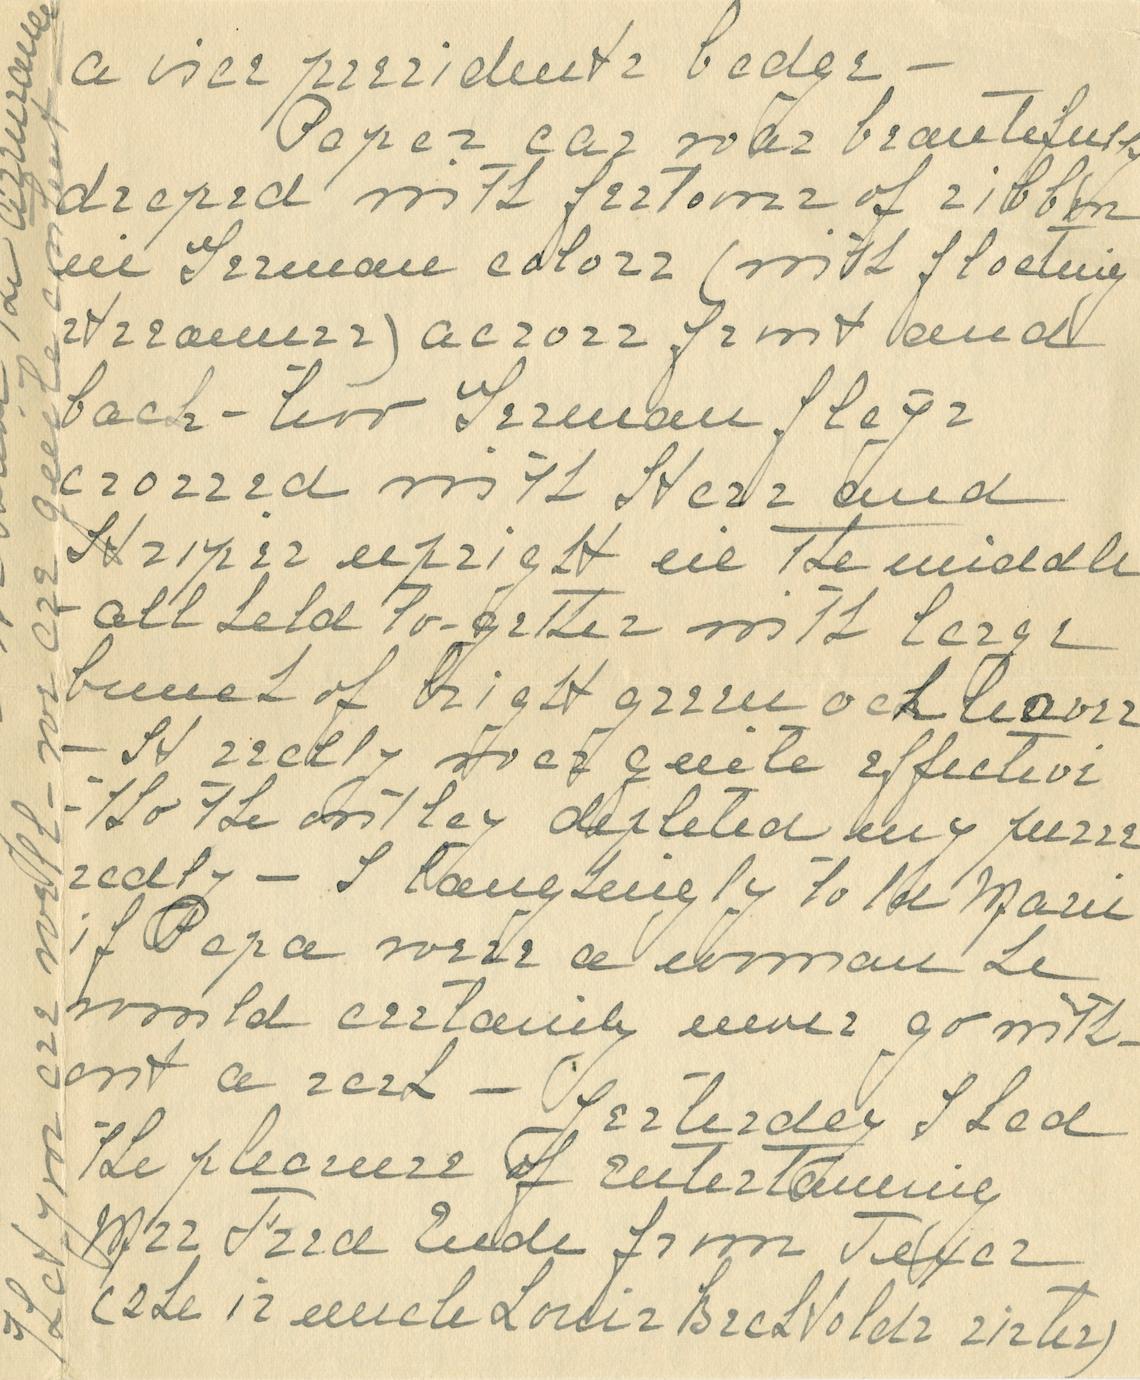 a vice presidents badge –
Papas car was beautifully
draped with festoons of ribbon
in German colors (with floating
streamers) across front and
back – two German flags
crossed with Stars and
Stripes upright in the middle
– all held to-gether with large
bunch of bright green oak leaves
– It really was quite effective
– tho the outlay depleted my purse
sadly – I laughingly told Marie
if Papa were a woman he
would certainly never go with-
out a sash – Yesterday I had
the pleasure of entertaining
Mrs Fred Ende from Texas
(she is uncle Louis Brachvolds sister)
that you are well – we are quite content
the assurance